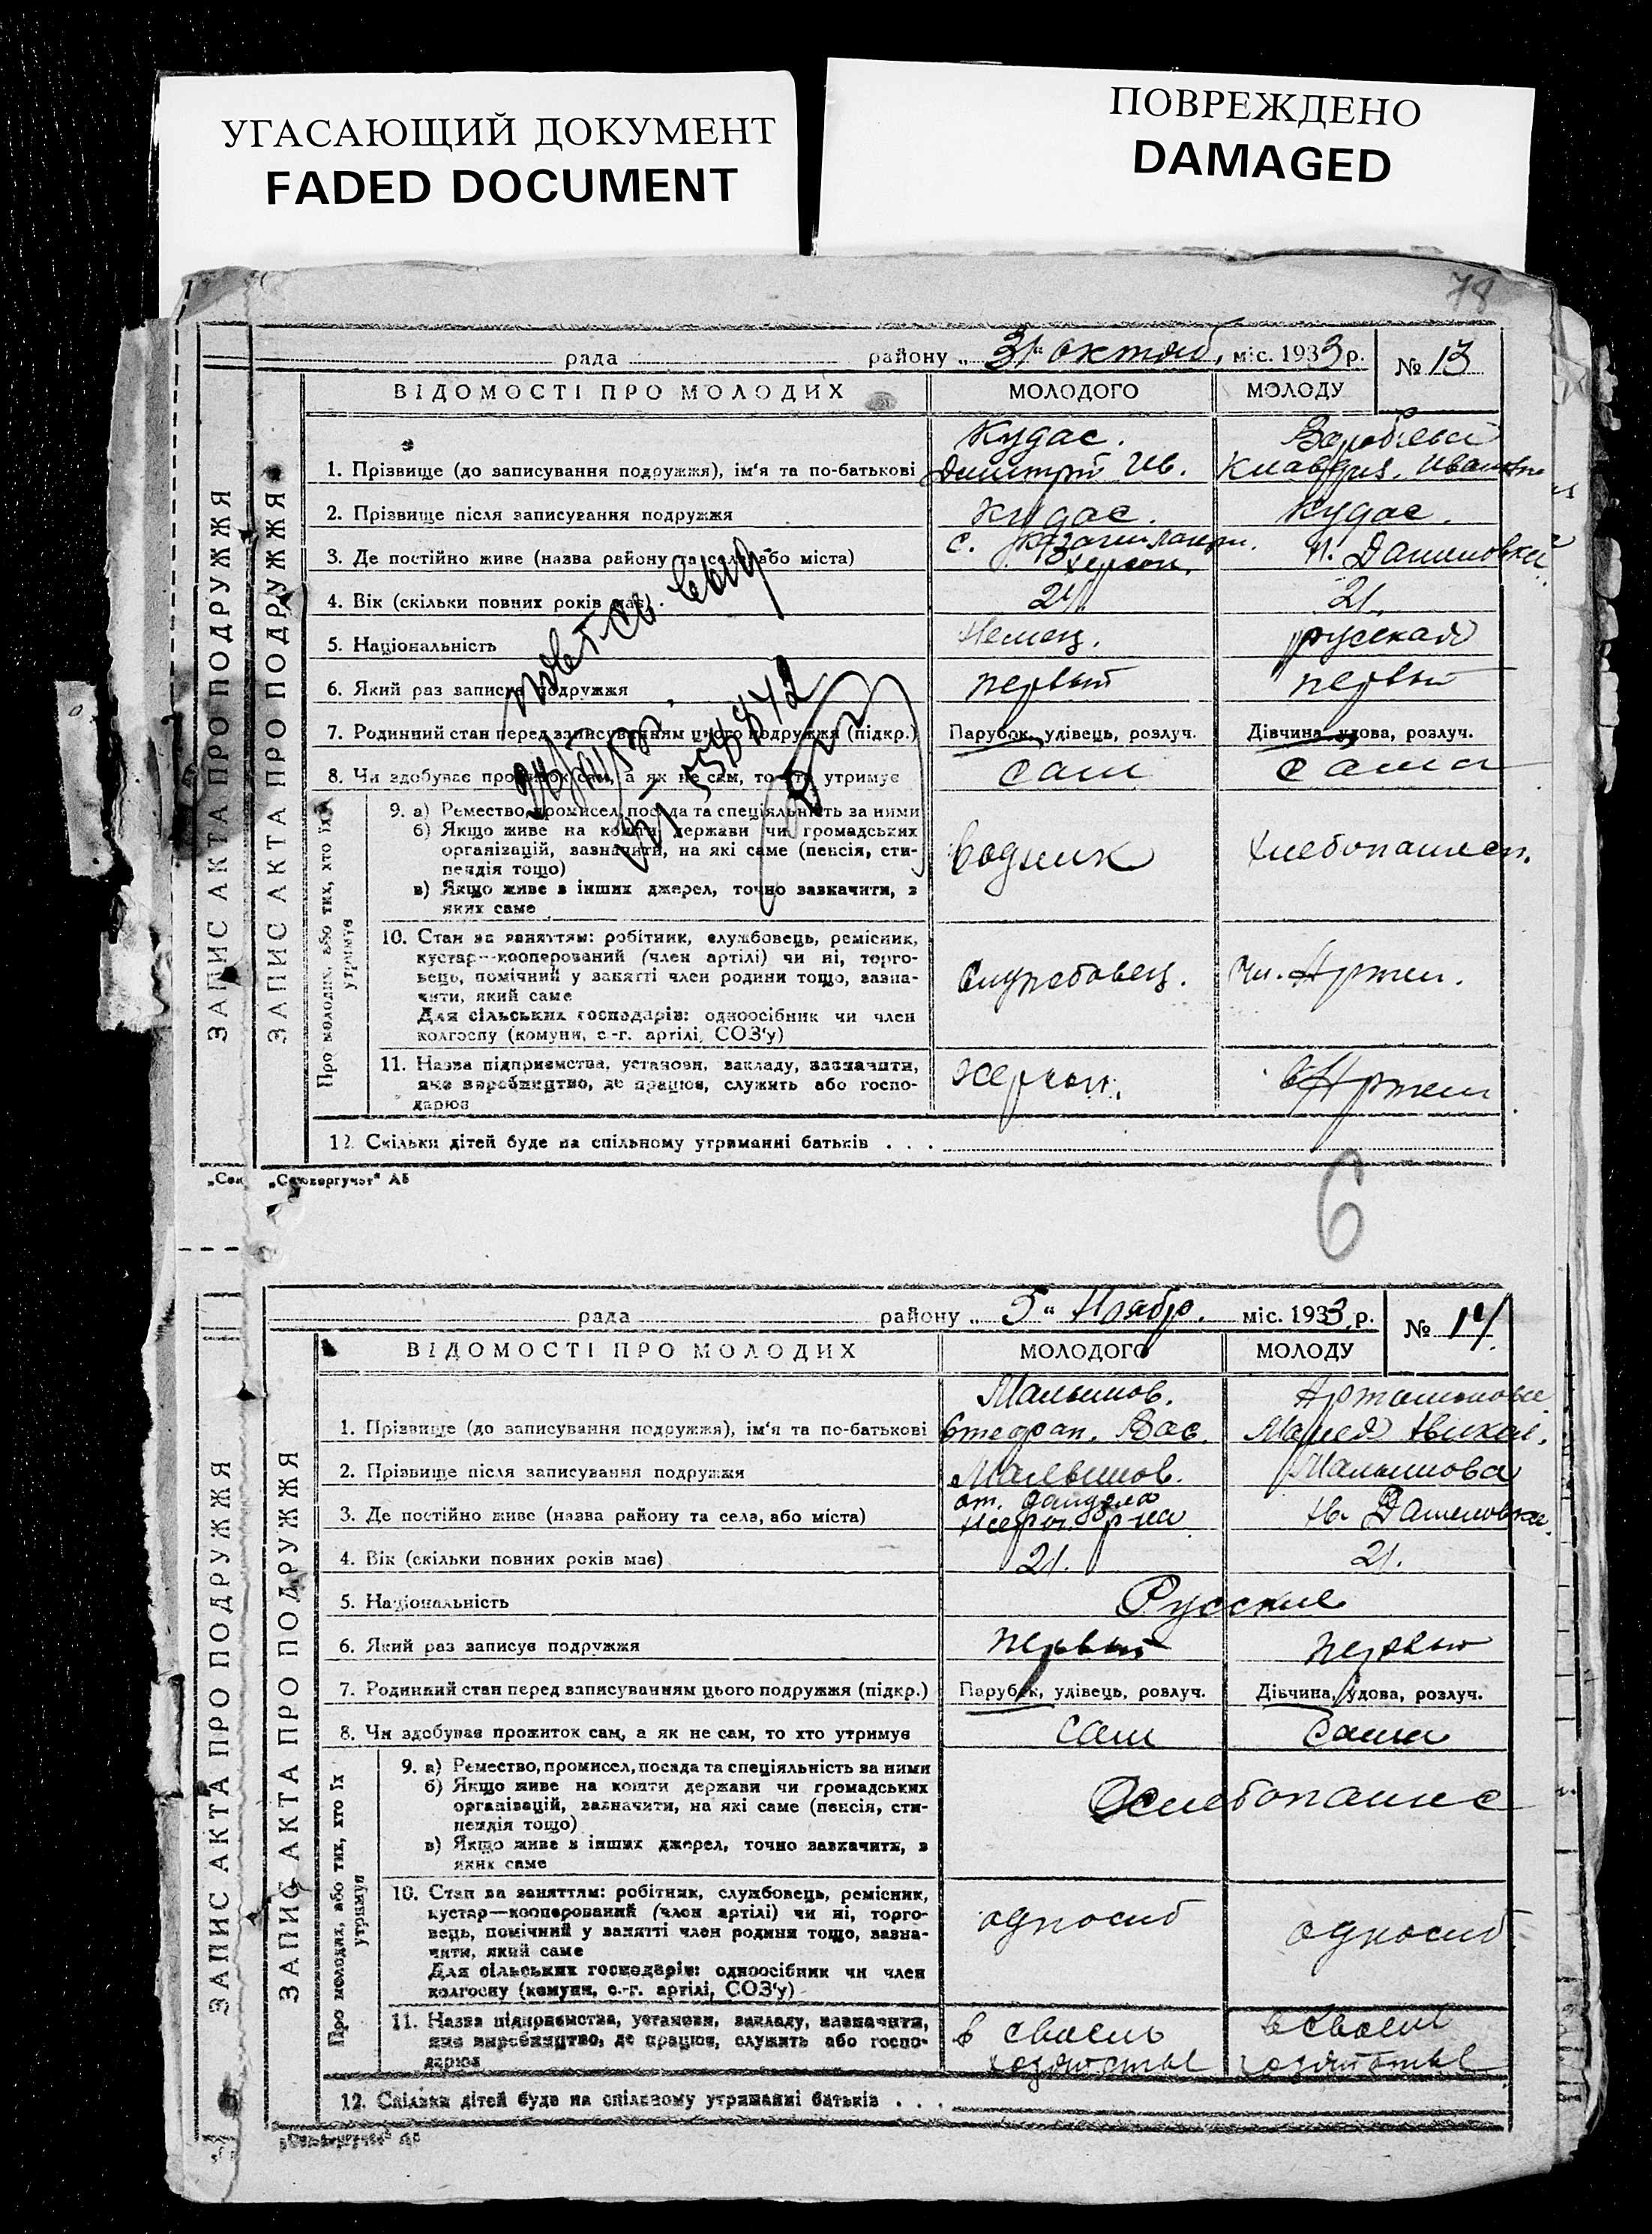 УГАСАЮЩИЙ ДОКУМЕНТ
FADED DOCUMENT
ПОВРЕЖДЕНО
DAMAGED
78
рада района „ 31 " октяб. міс. 1933 р. № 13
ВІДОМОСТІ ПРО МОЛОДИХ МОЛОДОГО МОЛОДУ
Кудас.
1. Прізвище (до записування подружжя), ім'я та по-батькові Димитрий Ив. Клавдия Ивановн
2. Прізвище після записування подружжя Кудас. Кудас.
3. Де постійно живе (назва району та села, або міста) с. Херсон. Н. Дашиловка
4. Вік (скільки повних років має) . 21. 21.
5. Національність Немец. русская
6. Який раз записує подружжя первый первый
7. Родинний стан перед записуванням цього подружжя (підкр.) Парубок, удівець, розлуч. Дівчина, удова, розлуч.
8. Чи здобуває прожиток сам, а як не сам, то хто утримує сам сама
Про молодих, або тих, хто їх утримує
9. а) Ремество, промисел, посада та спеціяльність за ними
б) Якщо живе на кошти держави чи громадських
організацій, зазначити, на які саме (пенсія, сти-
пендія тощо)
в) Якщо живе з інших джерел, точно зазначити, з
яких саме
водник хлебопашест.
10. Стан за заняттям: робітник, службовець, ремісник,
кустар—кооперований (член артілі) чи ні, торго-
вець, помічний у занятті член родини тощо, зазна-
чити, який саме
Для сільських господарів: одноосібник чи член
колгоспу (комуни, с.-г. артілі, СОЗ'у)
службовец. чл. Артел.
11. Назва підприємства, установи, закладу, зазначити,
яке виробництво, де працює, служить або госпо-
дарює
Херсон. в Артели
12. Скільки дітей буде на спільному утриманні батьків . . .
ЗАПИС АКТА ПРО ПОДРУЖЖЯ
ЗАПИС АКТА ПРО ПОДРУЖЖЯ
„Союзоргучот" Аб
6
рада району „ 5 " Ноябр. міс. 1933 р. № 14
ВІДОМОСТІ ПРО МОЛОДИХ МОЛОДОГО МОЛОДУ
Малышов. Артамонова
1. Прізвище (до записування подружжя), ім'я та по-батькові Стефан. Вас. Мария
2. Прізвище після записування подружжя Малышов. Малышова
3. Де постійно живе (назва району та села, або міста) Херс. р-на Н. Дашиловка
4. Вік (скільки повних років має) 21. 21.
5. Національність Русские
6. Який раз записує подружжя первый первый
7. Родинний стан перед записуванням цього подружжя (підкр.) Парубок, удівець, розлуч. Дівчина, удова, розлуч.
8. Чи здобуває прожиток сам, а як не сам, то хто утримує сам сама
Про молодих, або тих, хто їх утримує
9. а) Ремество, промисел, посада та спеціяльність за ними
б) Якщо живе на кошти держави чи громадських
організацій, зазначити, на які саме (пенсія, сти-
пендія тощо)
в) Якщо живе з інших джерел, точно зазначити, з
яких саме
Хлебопашес
10. Стан за заняттям: робітник, службовець, ремісник,
кустар—кооперований (член артілі) чи ні, торго-
вець, помічний у занятті член родини тощо, зазна-
чити, який саме
Для сільських господарів: одноосібник чи член
колгоспу (комуни, с.-г. артілі, СОЗ'у)
односиб односиб
11. Назва підприємства, установи, закладу, зазначити,
яке виробництво, де працює, служить або госпо-
дарює
в своем в своем
хозяйстве хозяйстве
12. Скільки дітей буде на спільному утриманні батьків . . .
ЗАПИС АКТА ПРО ПОДРУЖЖЯ
ЗАПИС АКТА ПРО ПОДРУЖЖЯ
„Союзоргучот" Аб